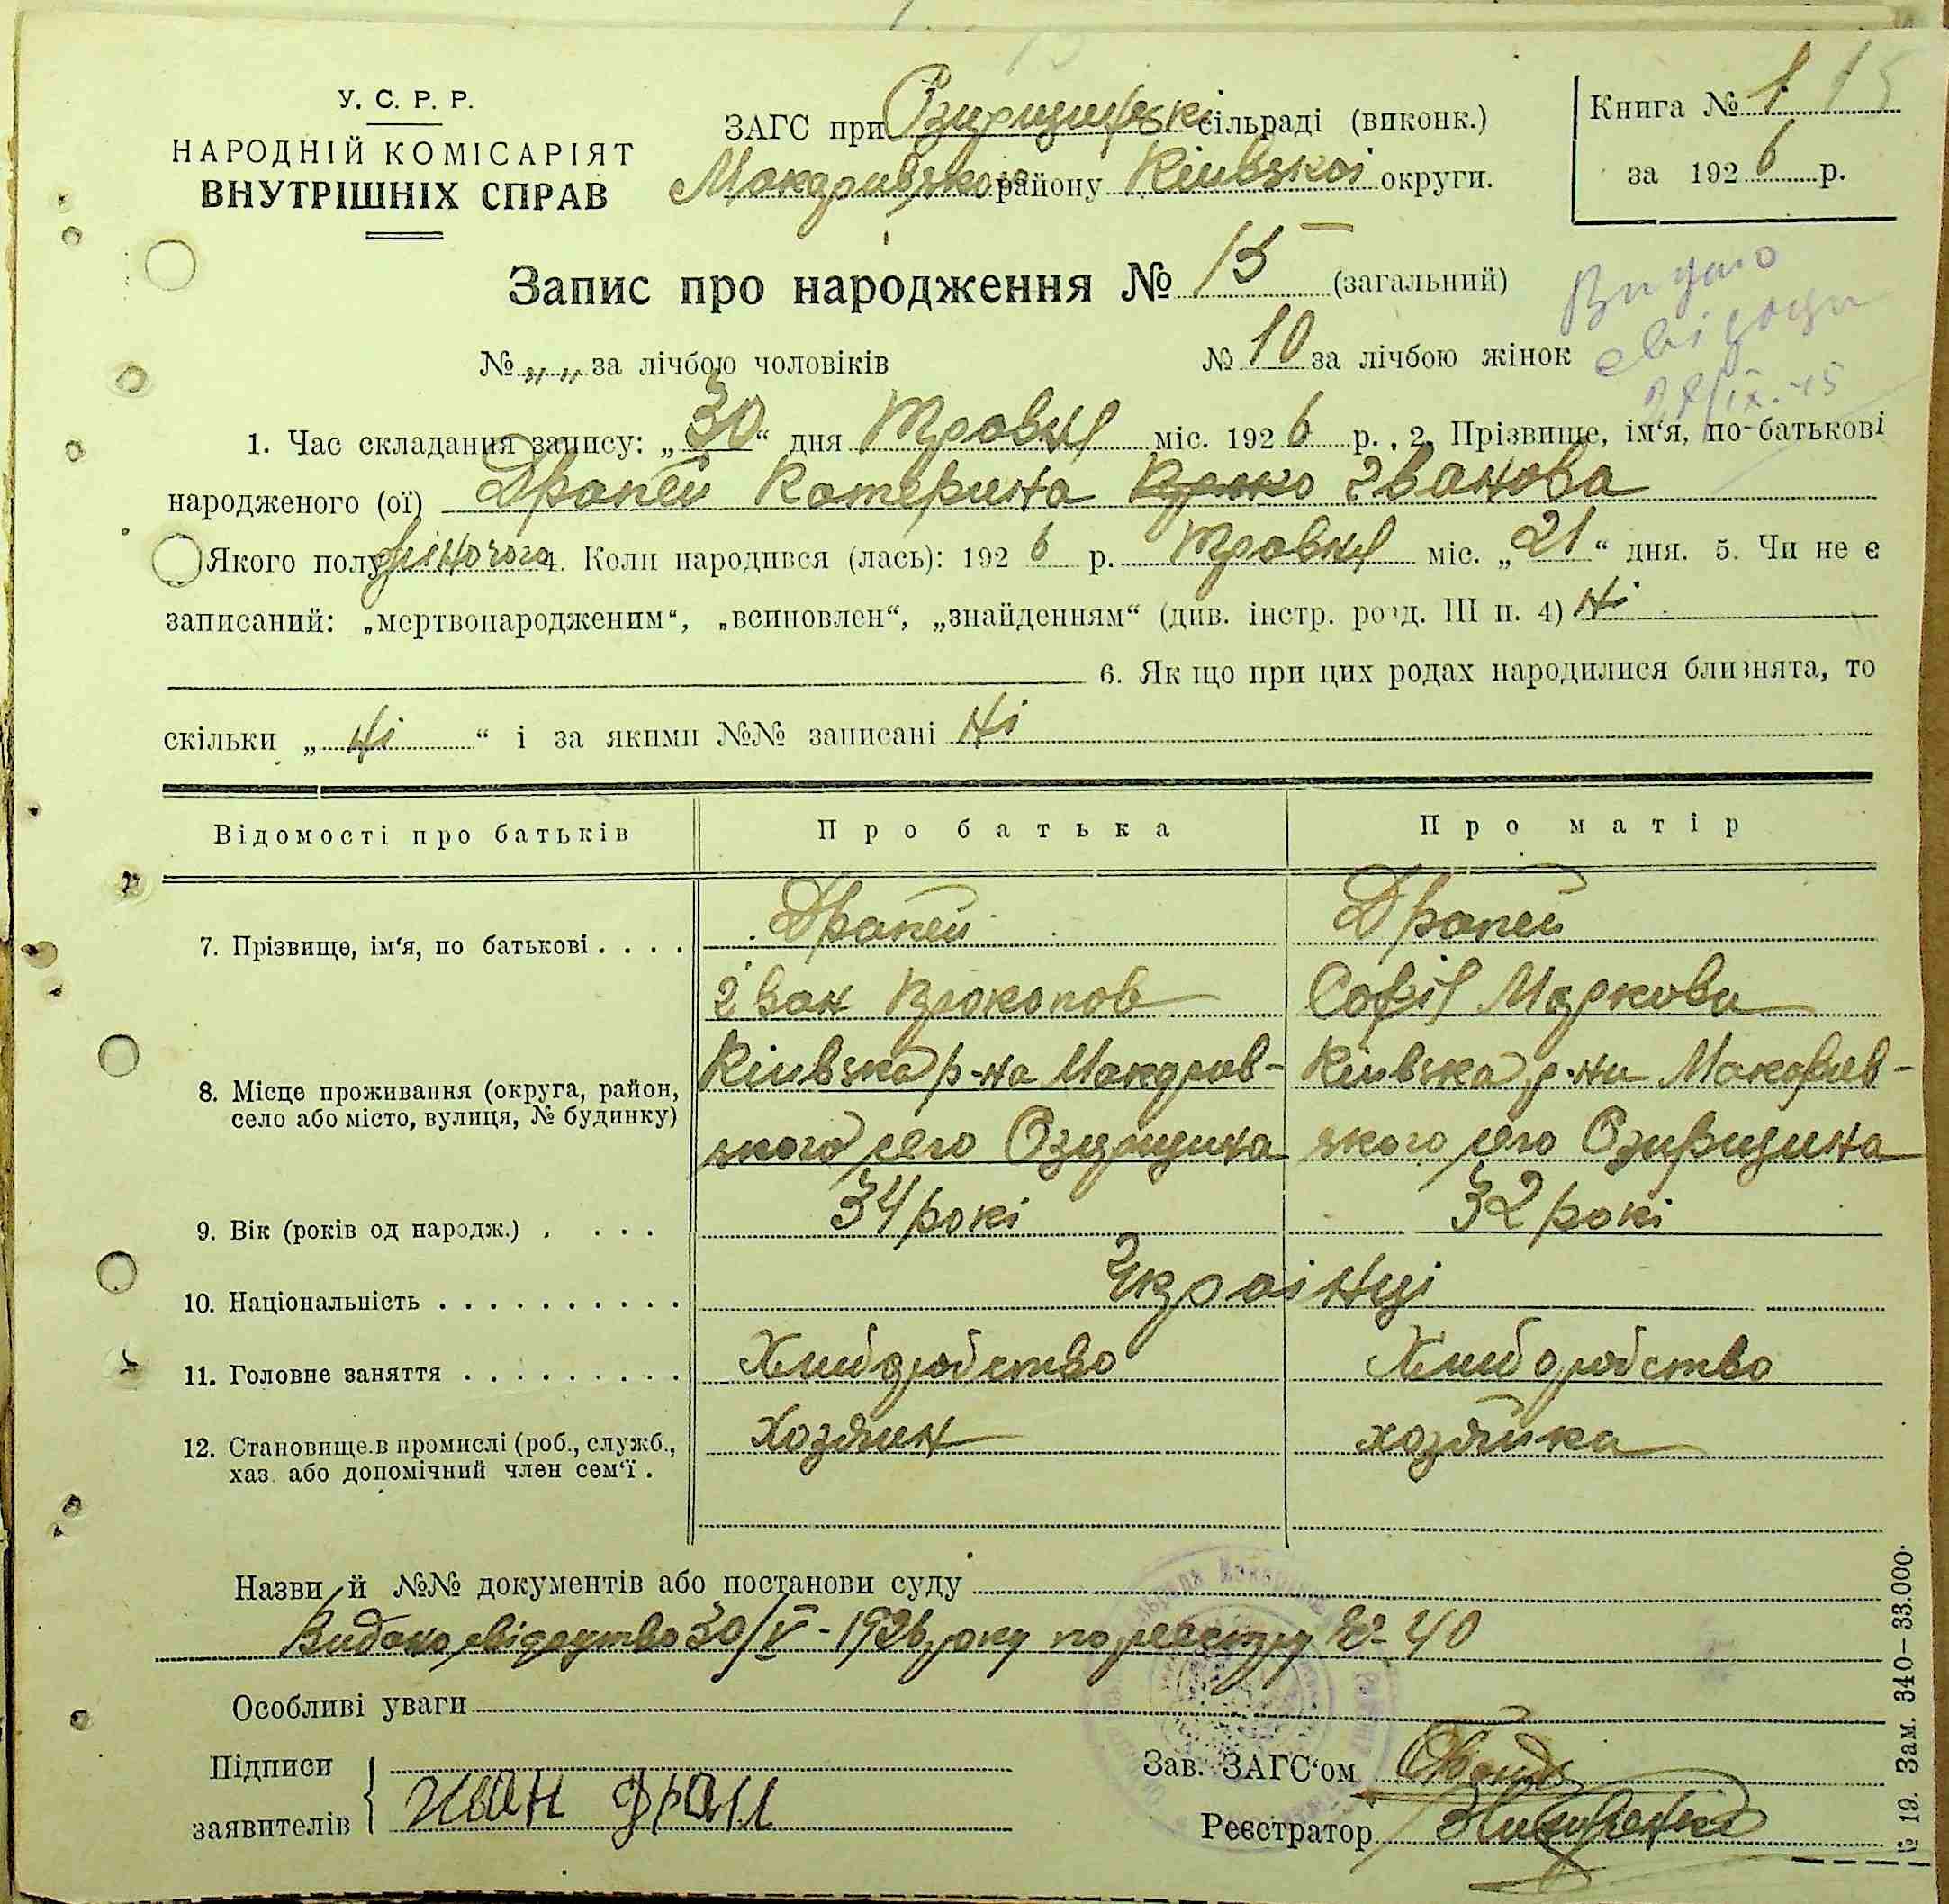 У. С. Р. Р.
НАРОДНІЙ КОМІСАРІЯТ
ВНУТРІШНІХ СПРАВ
ЗАГС при сільраді (виконк.)
району Київскої округи.
Книга № 1 15
за 1926 р.
Запис про народження № 15 (загальний)
Видано
28/IX-45
№ „ „ за лічбою чоловіків № 10 за лічбою жінок
1. Час складання запису: „30“ дня Травня міс. 1926 р. , 2. Прізвище, ім‘я, по-батькові
народженого (ої) Драпей Катерина Іванова
Якого полу жіночого 4. Коли народився (лась): 1926 р. Травня міс. „21“ дня. 5. Чи не є
записаний: „мертвонародженим“, „всиновлен“, „знайденням“ (див. інстр. розд. III п. 4) Ні
6. Як що при цих родах народилися близнята, то
скільки „ Ні “ і за якими №№ записані Ні
Відомості про батьків Про батька Про матір
7. Прізвище, ім‘я, по батькові . . . . Драпей Драпей
Іван Прокопов Софія Маркови
8. Місце проживання (округа, район, село або місто, вулиця, № будинку)
Київска р-на Макарів- Київска р-ни Макарів-
ского село Озирщина ского село Озирщина
9. Вік (років од народж.) . . . . 34 рокі 32 рокі
10. Національність . . . . . . . . . . Українці
11. Головне заняття . . . . . . . . . Хлиборобство Хлиборобство
12. Становище в промислі (роб., служб., Хозяин хозяйка
хаз. або допомічний член сем‘ї .
Назви й №№ документів або постанови суду
Видано свідоцтво 30/V-1926 року по реєстру № 40
Особливі уваги
Підписи
заявителів
Иван Драп
Зав. ЗАГС‘ом
Реєстратор
№ 19. Зам. 340—33.000.